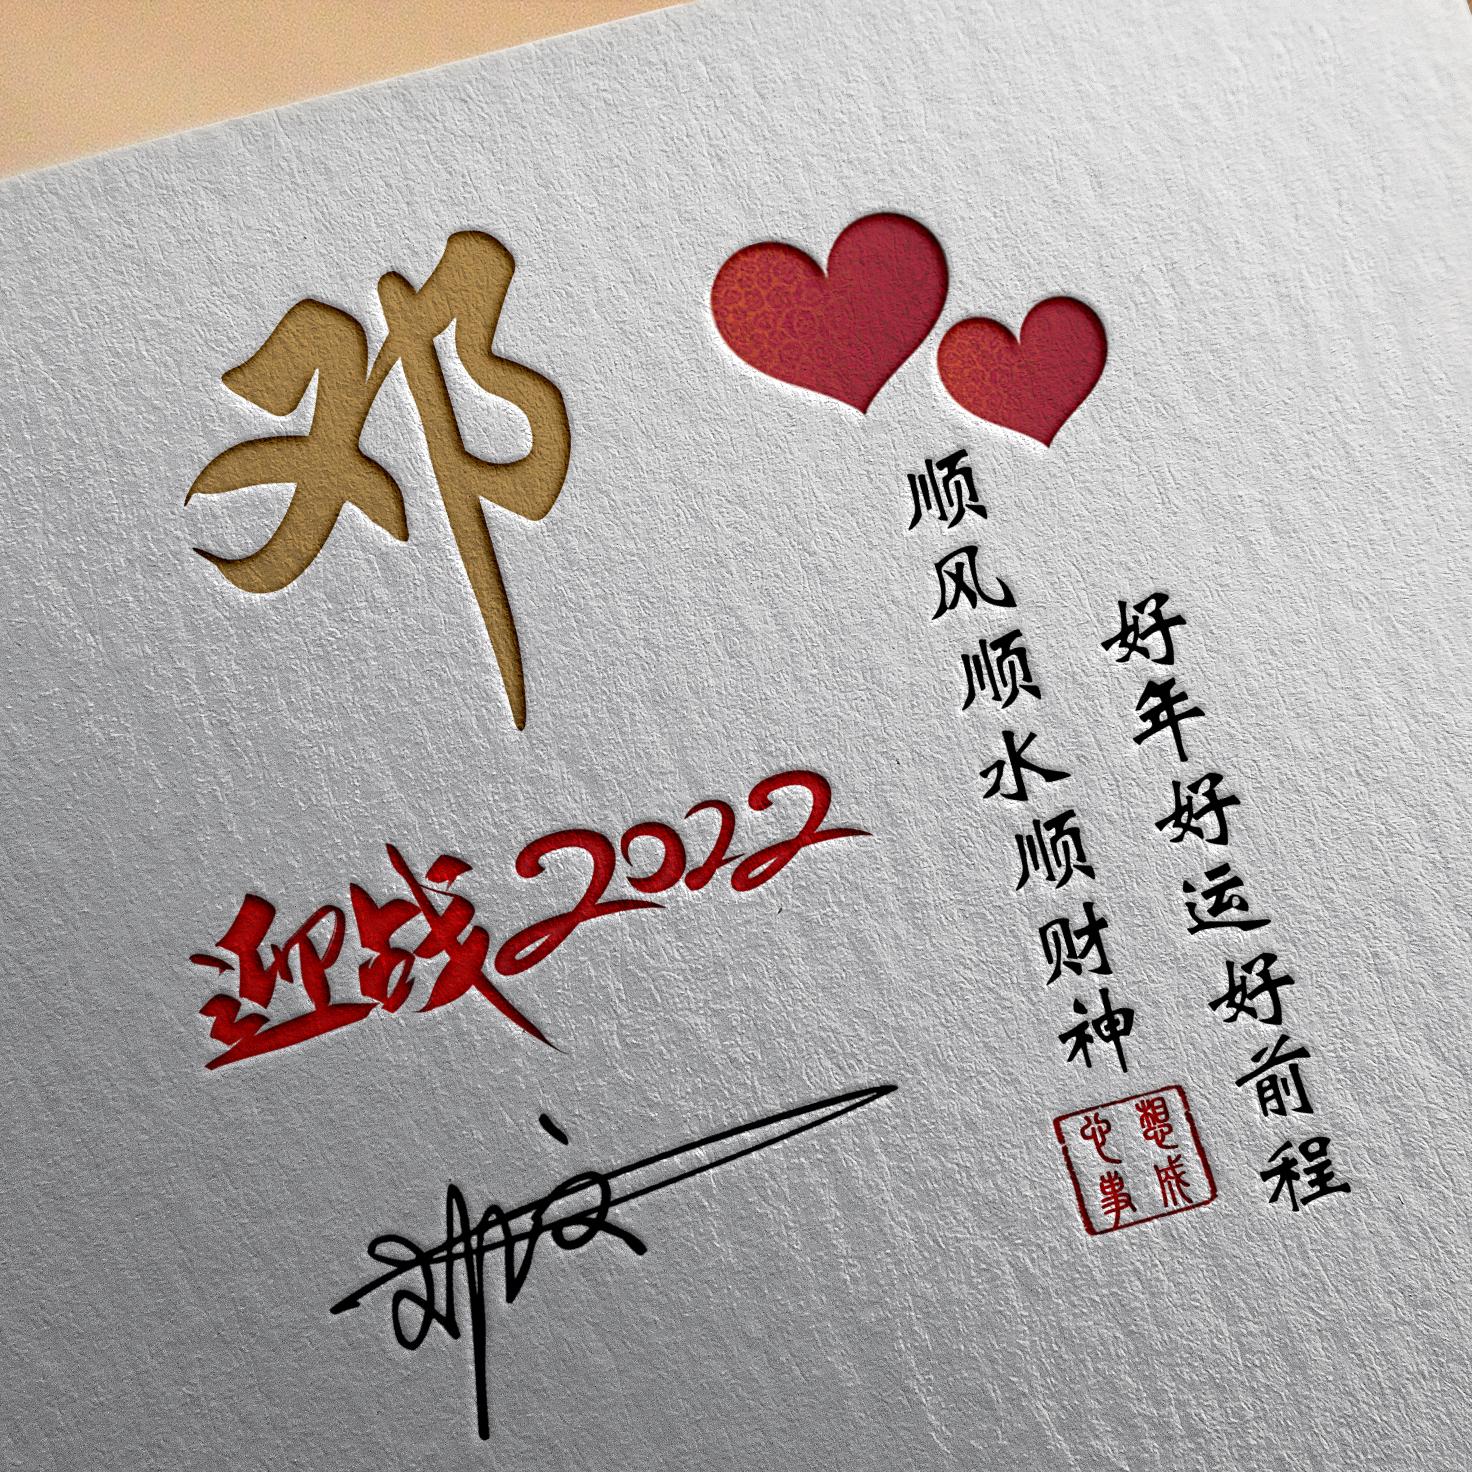 邓
迎战2022
顺风顺水顺财神
好年好运好前程
想成
心事